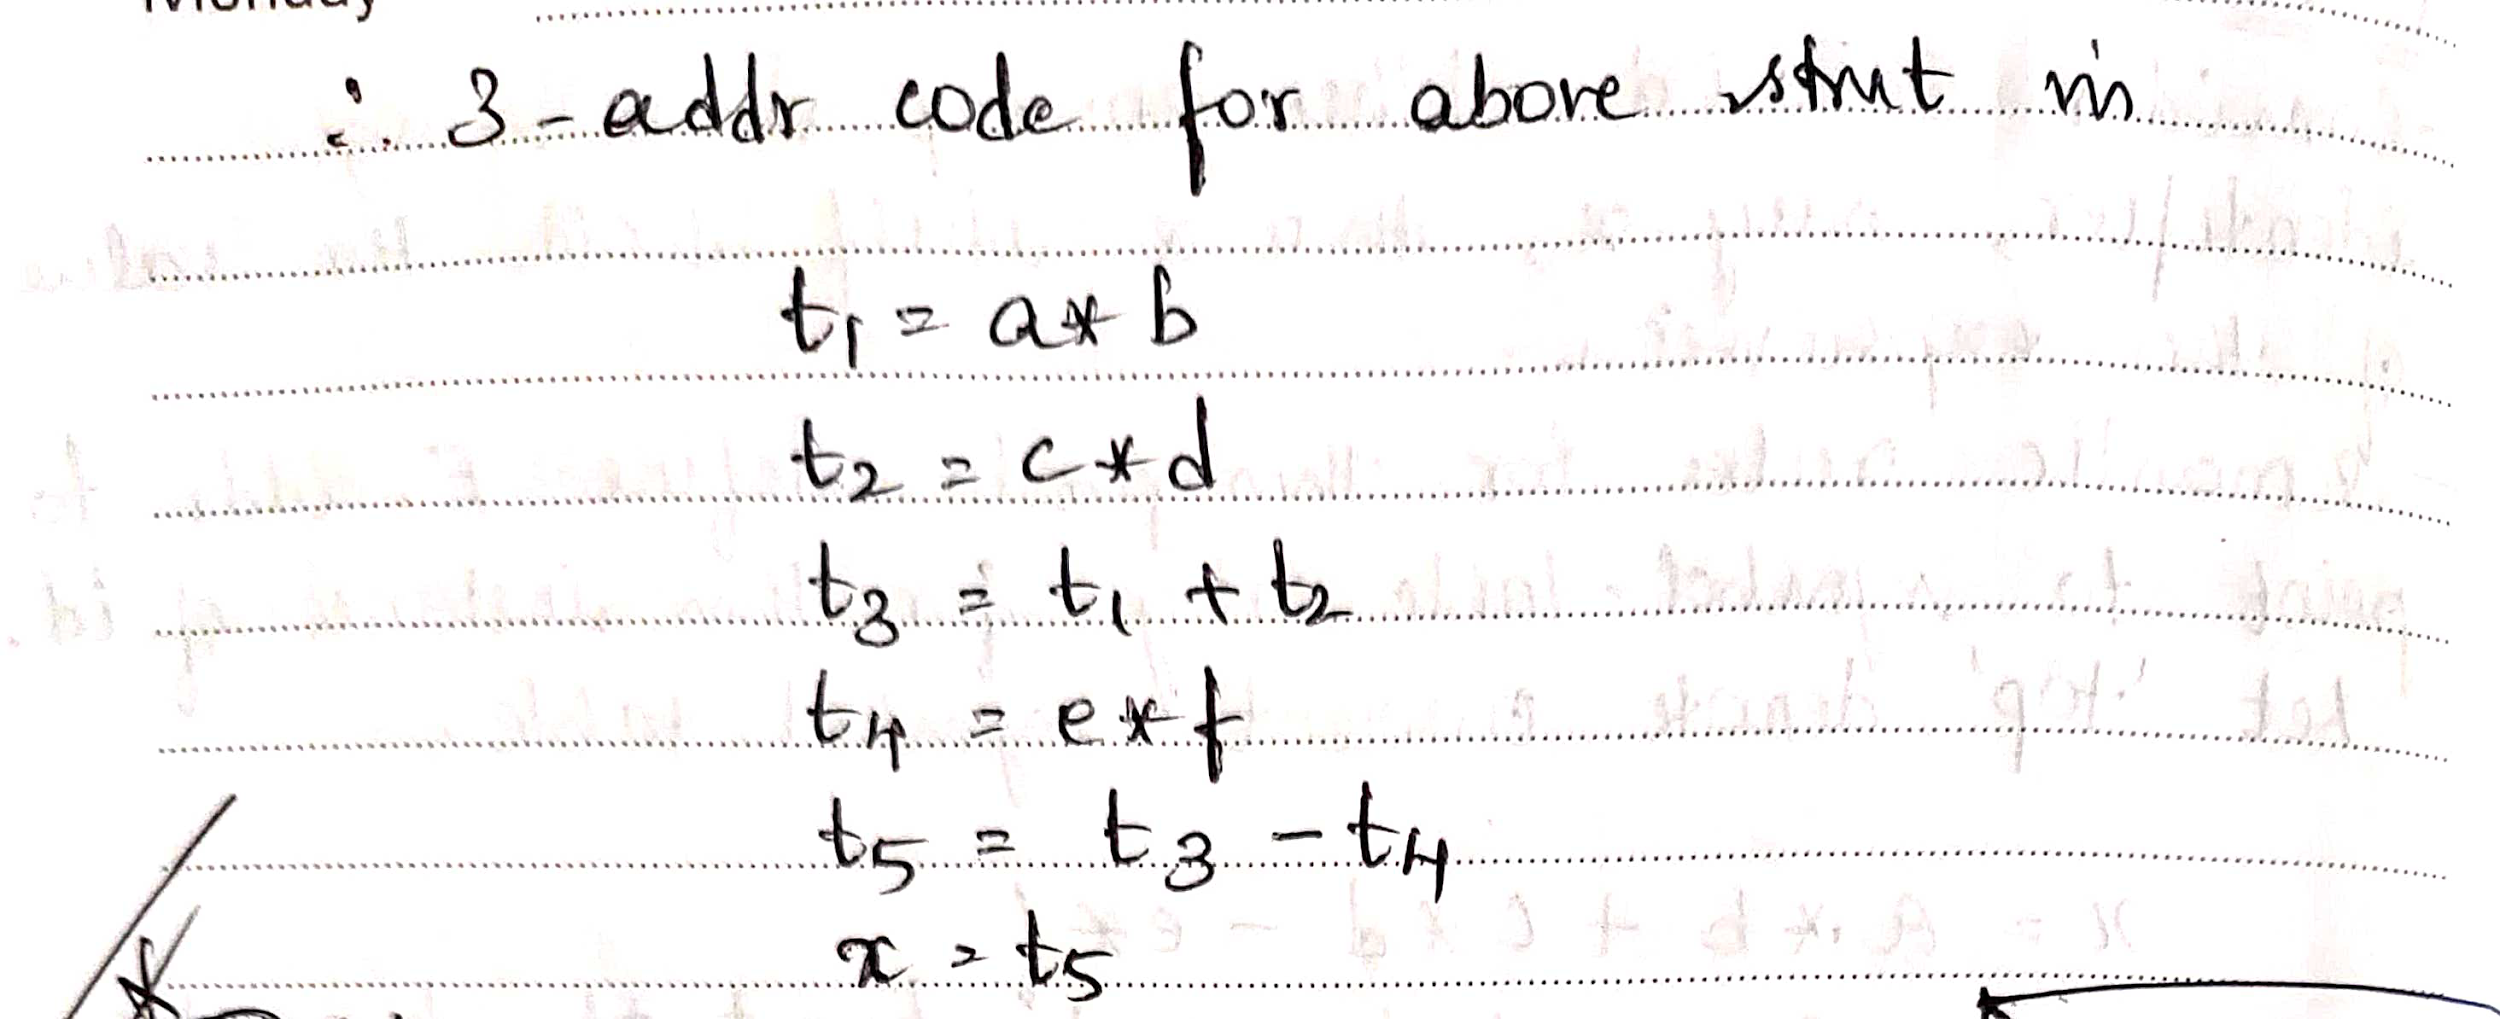 Monday
∴ 3-addr code for above stmt is
t1 = a * b
t2 = c * d
t3 = t1 + t2
t4 = e * f
t5 = t3 - t4
x = t5